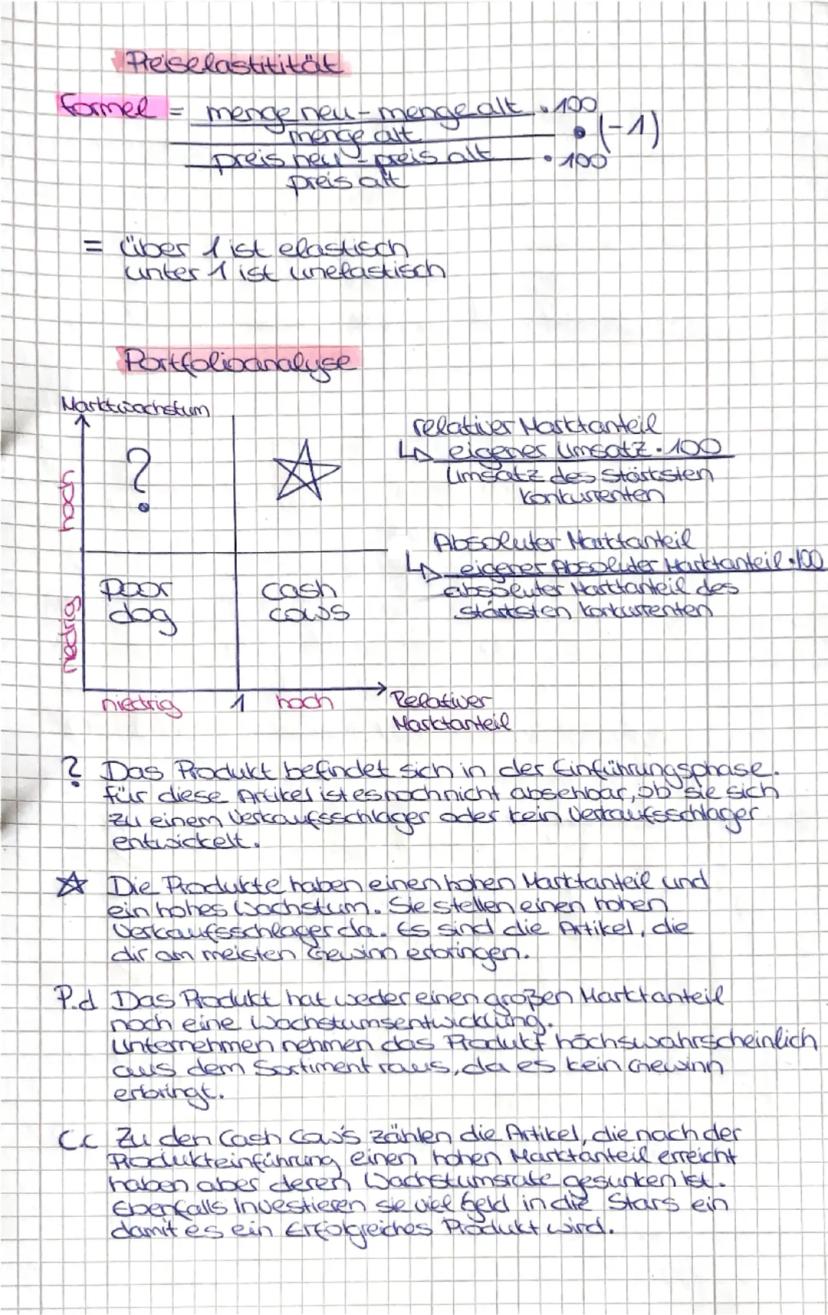 Preiselastitität
Formel = menge neu - menge alt • 100
menge alt
• (-1)
preis neu - preis alt • 100
preis alt
= über 1 ist elastisch
unter 1 ist unelastisch
Portfolioanalyse
Marktwachstum
relativer Marktanteil
↳ eigener Umsatz • 100
Umsatz des stärksten
konkurrenten
hoch
?
Absoluter Marktanteil
↳ eigener Absoluter Marktanteil • 100
absoluter Marktanteil des
stärksten konkurrenten
niedrig
poor
dog
cash
cows
niedrig 1 hoch
Relativer
Marktanteil
? Das Produkt befindet sich in der Einführungsphase.
für diese Artikel ist es noch nicht absehbar, ob sie sich
zu einem Verkaufsschlager oder kein Verkaufsschlager
entwickelt.
☆ Die Produkte haben einen hohen Marktanteil und
ein hohes Wachstum. Sie stellen einen hohen
Verkaufsschlager da. Es sind die Artikel, die
dir am meisten Gewinn erbringen.
P.d Das Produkt hat weder einen großen Marktanteil
noch eine Wachstumsentwicklung.
Unternehmen nehmen das Produkt höchswahrscheinlich
aus dem Sortiment raus, da es kein Gewinn
erbringt.
C.c Zu den Cash Cow's zählen die Artikel, die nach der
Produkteinführung einen hohen Marktanteil erreicht
haben aber deren Wachstumsrate gesunken ist.
Ebenfalls Investieren sie viel Geld in die Stars ein
damit es ein Erfolgreiches Produkt wird.